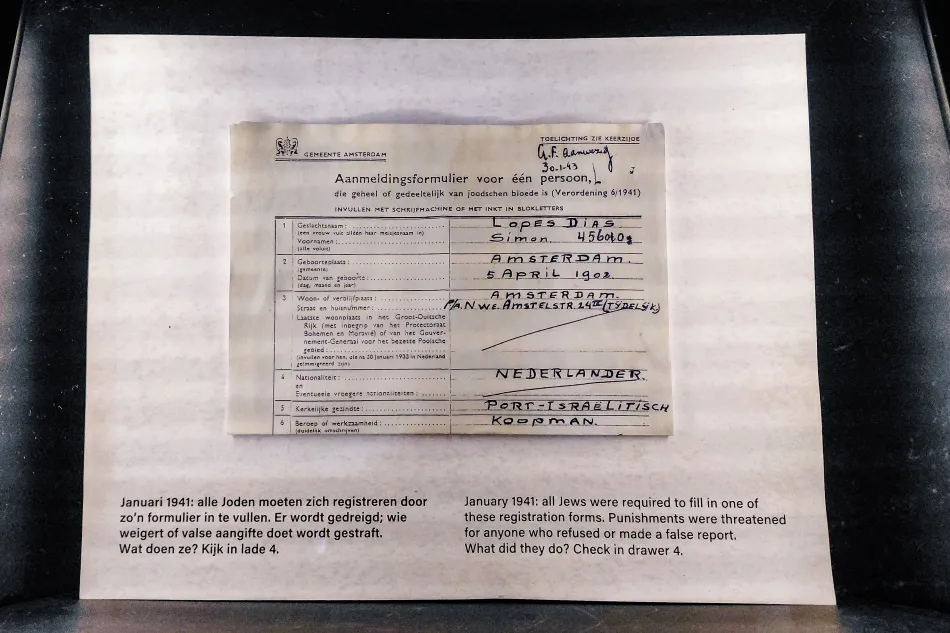 TOELICHTING ZIE KEERZIJDE
GEMEENTE AMSTERDAM
G.F. Aanwezig
30-1-43
Aanmeldingsformulier voor één persoon,
die geheel of gedeeltelijk van joodschen bloede is (Verordening 6/1941)
INVULLEN MET SCHRIJFMACHINE OF MET INKT IN BLOKLETTERS
1 Geslachtsnaam: LOPES DIAS
(een vrouw vult alleen haar meisjesnaam in)
Voornamen: Simon.
(alle voluit)
2 Geboorteplaats: AMSTERDAM.
(gemeente)
Datum van geboorte: 5 APRIL 1902.
(dag, maand en jaar)
3 Woon- of verblijfplaats: AMSTERDAM.
Straat en huisnummer: P/A. NWE. AMSTELSTR. 24 (TYDELYK)
Laatste woonplaats in het Groot-Duitsche
Rijk (met inbegrip van het Protectoraat
Bohemen en Moravië) of van het Gouver-
nement-Generaal voor het bezette Poolsche
gebied:
(invullen voor hen, die na 30 Januari 1933 in Nederland
geïmmigreerd zijn)
4 Nationaliteit: NEDERLANDER.
en
Eventueele vroegere nationaliteiten:
5 Kerkelijke gezindte: PORT-ISRAËLITISCH
6 Beroep of werkzaamheid: KOOPMAN.
(duidelijk omschrijven)
Januari 1941: alle Joden moeten zich registreren door
zo'n formulier in te vullen. Er wordt gedreigd; wie
weigert of valse aangifte doet wordt gestraft.
Wat doen ze? Kijk in lade 4.
January 1941: all Jews were required to fill in one of
these registration forms. Punishments were threatened
for anyone who refused or made a false report.
What did they do? Check in drawer 4.